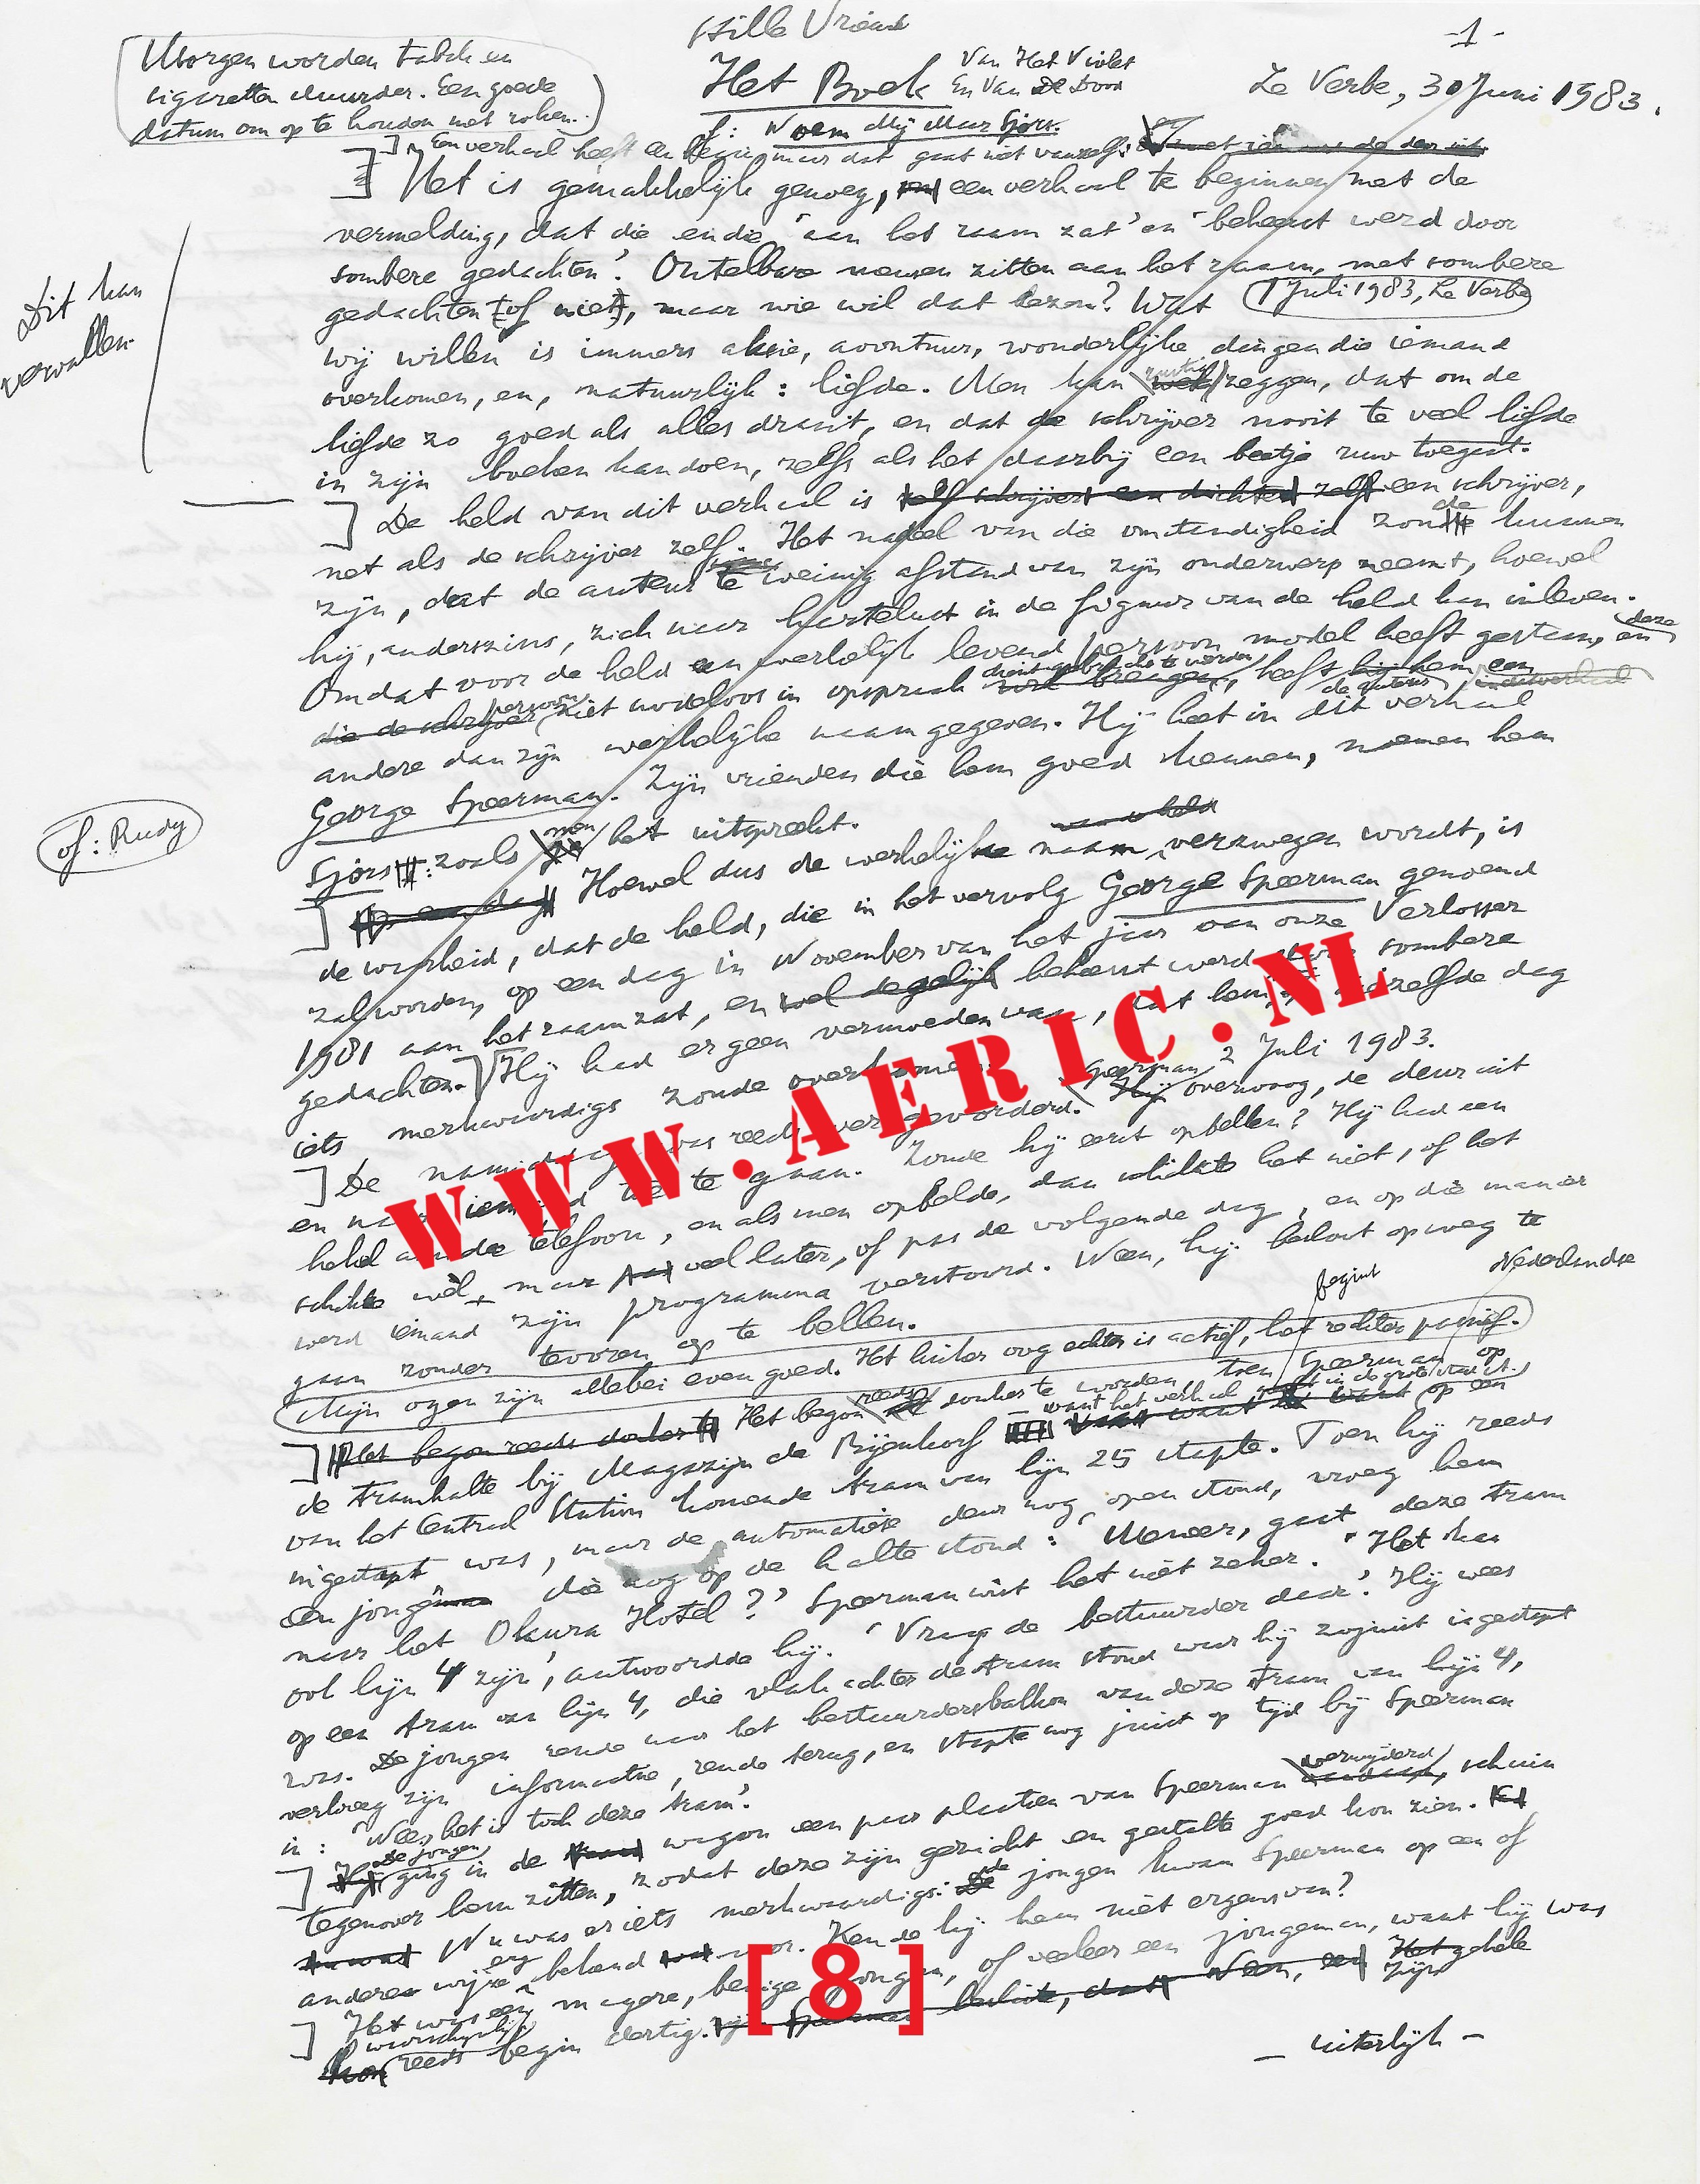 Stille Vriend
- 1 -
Morgen worden tabak en
sigaretten duurder. Een goede
datum om op te houden met roken.
Het Boek Van Het Violet
En Van De Dood
La Verbe, 30 Juni 1983.
of: Noem Mij Maar Sjors.
Een verhaal heeft een begin, maar dat gaat niet vanzelf:
Het is gemakkelijk genoeg, een verhaal te beginnen met de
vermelding, dat die en die 'aan het raam zat' en 'beheerst werd door
sombere gedachten'. Ontelbare mensen zitten aan het raam, met sombere
gedachten (of niet), maar wie wil dat lezen? Wat
1 Juli 1983, La Verbe
Dit kan
vervallen.
wij willen is immers aksie, avontuur, wonderlijke dingen die iemand
overkomen, en, natuurlijk: liefde. Men kan rustig zeggen, dat om de
liefde zo goed als alles draait, en dat de schrijver nooit te veel liefde
in zijn boeken kan doen, zelfs als het daarbij een beetje ruw toegaat.
De held van dit verhaal is zelf een schrijver,
net als de schrijver zelf. Het nadeel van die omstandigheid zou de kunnen
zijn, dat de auteur te weinig afstand van zijn onderwerp neemt, hoewel
hij, anderszins, zich naar hartelust in de figuur van de held kan inleven.
Omdat voor de held een werkelijk levend persoon model heeft gestaan, en deze
die de schrijver persoon niet nodeloos in opspraak dient gebracht te worden, heeft de auteur hem een
andere dan zijn werkelijke naam gegeven. Hij heet in dit verhaal
George Speerman. Zijn vrienden die hem goed kennen, noemen hem
of: Rudy
Sjors: zoals men het uitspreekt.
Op een dag Hoewel dus de werkelijke naam verzwegen wordt, is
de waarheid, dat de held, die in het vervolg George Speerman genoemd
zal worden, op een dag in November van het jaar van onze Verlosser
1981 aan het raam zat, en wel degelijk beheerst werd door sombere
gedachten. Hij had er geen vermoeden van, dat hem op diezelfde dag
iets merkwaardigs zoude overkomen. 2 Juli 1983.
De namiddag was reeds ver gevorderd. Speerman overwoog, de deur uit
en naar iemand toe te gaan. Zoude hij eerst opbellen? Hij had een
hekel aan de telefoon, en als men opbelde, dan schikte het niet, of het
schikte wel, maar veel later, of pas de volgende dag, en op die manier
werd iemand zijn programma verstoord. Neen, hij besloot op weg te
gaan zonder tevoren op te bellen.
begint Nederlandse
Mijn ogen zijn allebei even goed. Het linker oog echter is actief, het rechter passief.
Het begon reeds donker te Het begon reeds donker te worden toen Speerman op
de tramhalte bij Magazijn de Bijenkorf want het verhaal in de grote stad op een
van het Centraal Station komende tram van lijn 25 stapte. Toen hij reeds
ingestapt was, maar de automatische deur nog open stond, vroeg hem
een jongeman die nog op de halte stond: 'Meneer, gaat deze tram
naar het Okura Hotel?' Speerman wist het niet zeker. 'Het kan
ook lijn 4 zijn', antwoordde hij. 'Vraag de bestuurder daar'. Hij wees
op een tram van lijn 4, die vlak achter de tram stond waar hij zojuist ingestapt
was. De jongen rende naar het bestuurdersbalkon van deze tram van lijn 4,
verkreeg zijn informatie, rende terug, en stapte nog juist op tijd bij Speerman
in: 'Nee, het is toch deze tram'.
De jongen ging in de wagon een paar plaatsen van Speerman verwijderd, schuin
tegenover hem zitten, zodat deze zijn gezicht en gestalte goed kon zien.
Nu was er iets merkwaardigs: de jongen kwam Speerman op een of
andere wijze erg bekend voor. Kende hij hem niet ergens van?
Het was een magere, benige jongen, of veeleer een jongeman, want hij was
waarschijnlijk reeds begin dertig. Zijn gehele
- uiterlijk -
WWW.AERIC.NL
[8]